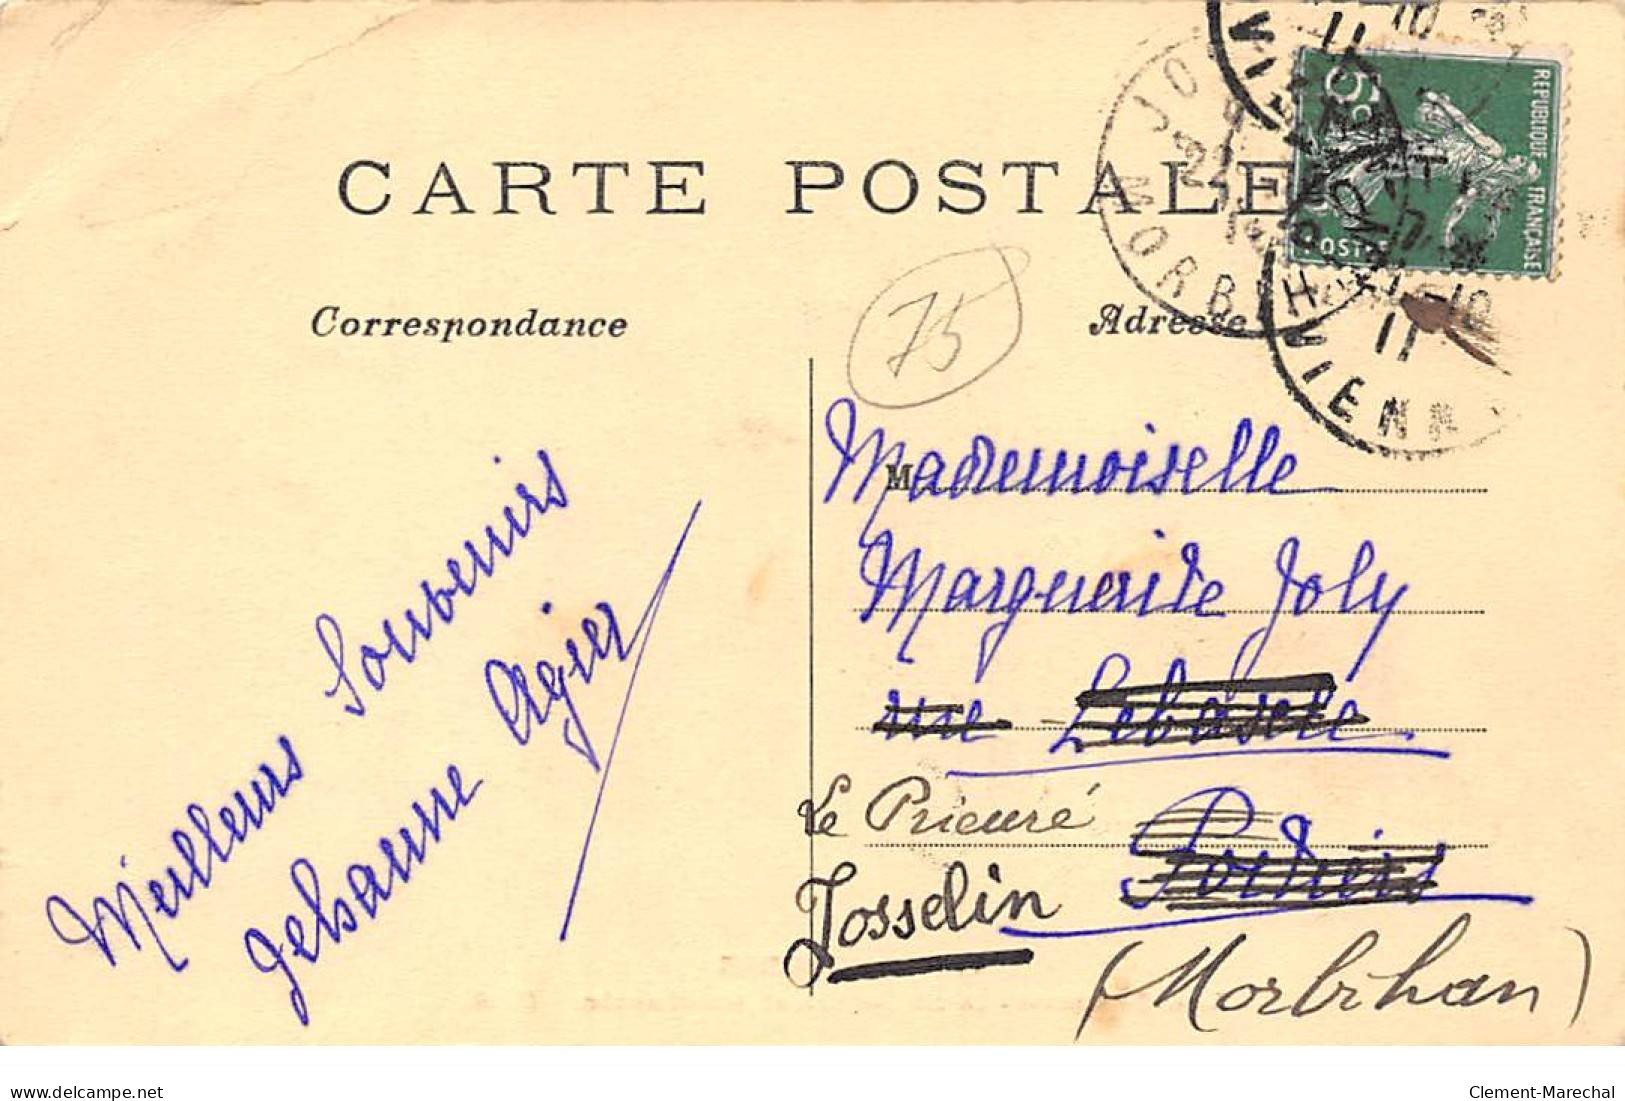 CARTE POSTALE
Correspondance
Adresse
75
REPUBLIQUE FRANÇAISE
5c
POSTES
MORBIHAN
VIENNE
11
VIENNE
11
Meilleurs Souvenirs
Jehanne Agier
M
Mademoiselle
Marguerite Joly
rue
Le Prieuré
Poitiers
Josselin
(Morbihan)
delcampe.net
Clement-Marechal